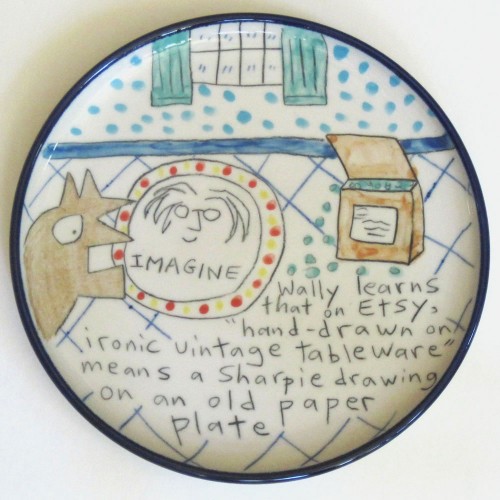 IMAGINE
Wally learns
that on Etsy,
"hand-drawn on
ironic vintage tableware"
means a Sharpie drawing
on an old paper
plate